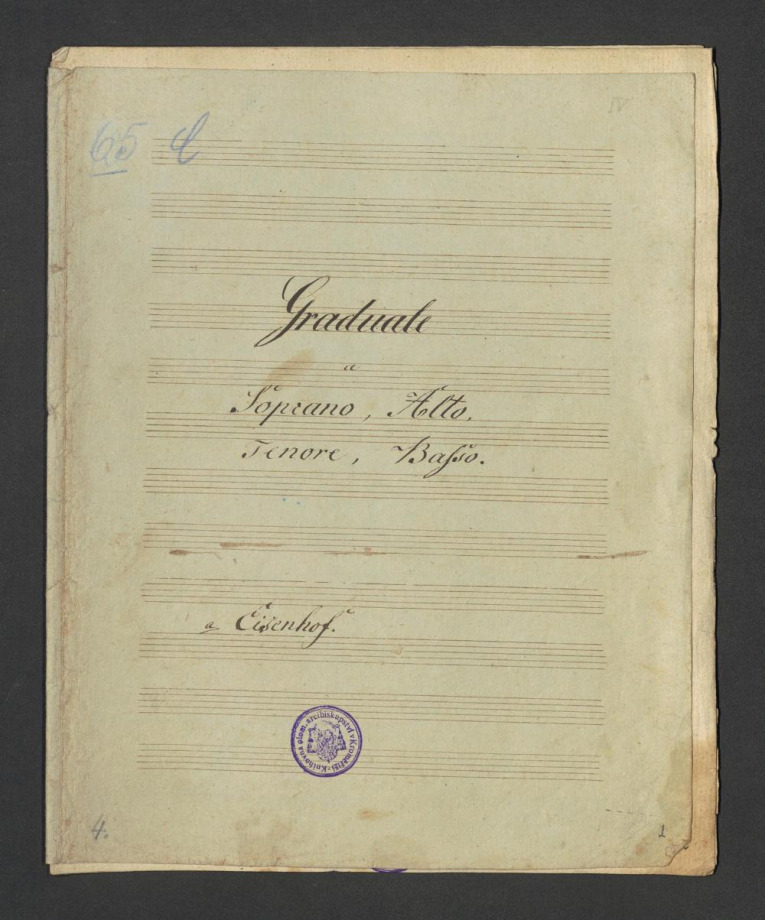 IV
65 C
Graduale
a
Soprano, Alto,
Tenore, Basso.
a Eisenhof.
Knihovna olom. arcibiskupství v Kroměříži
4.
1